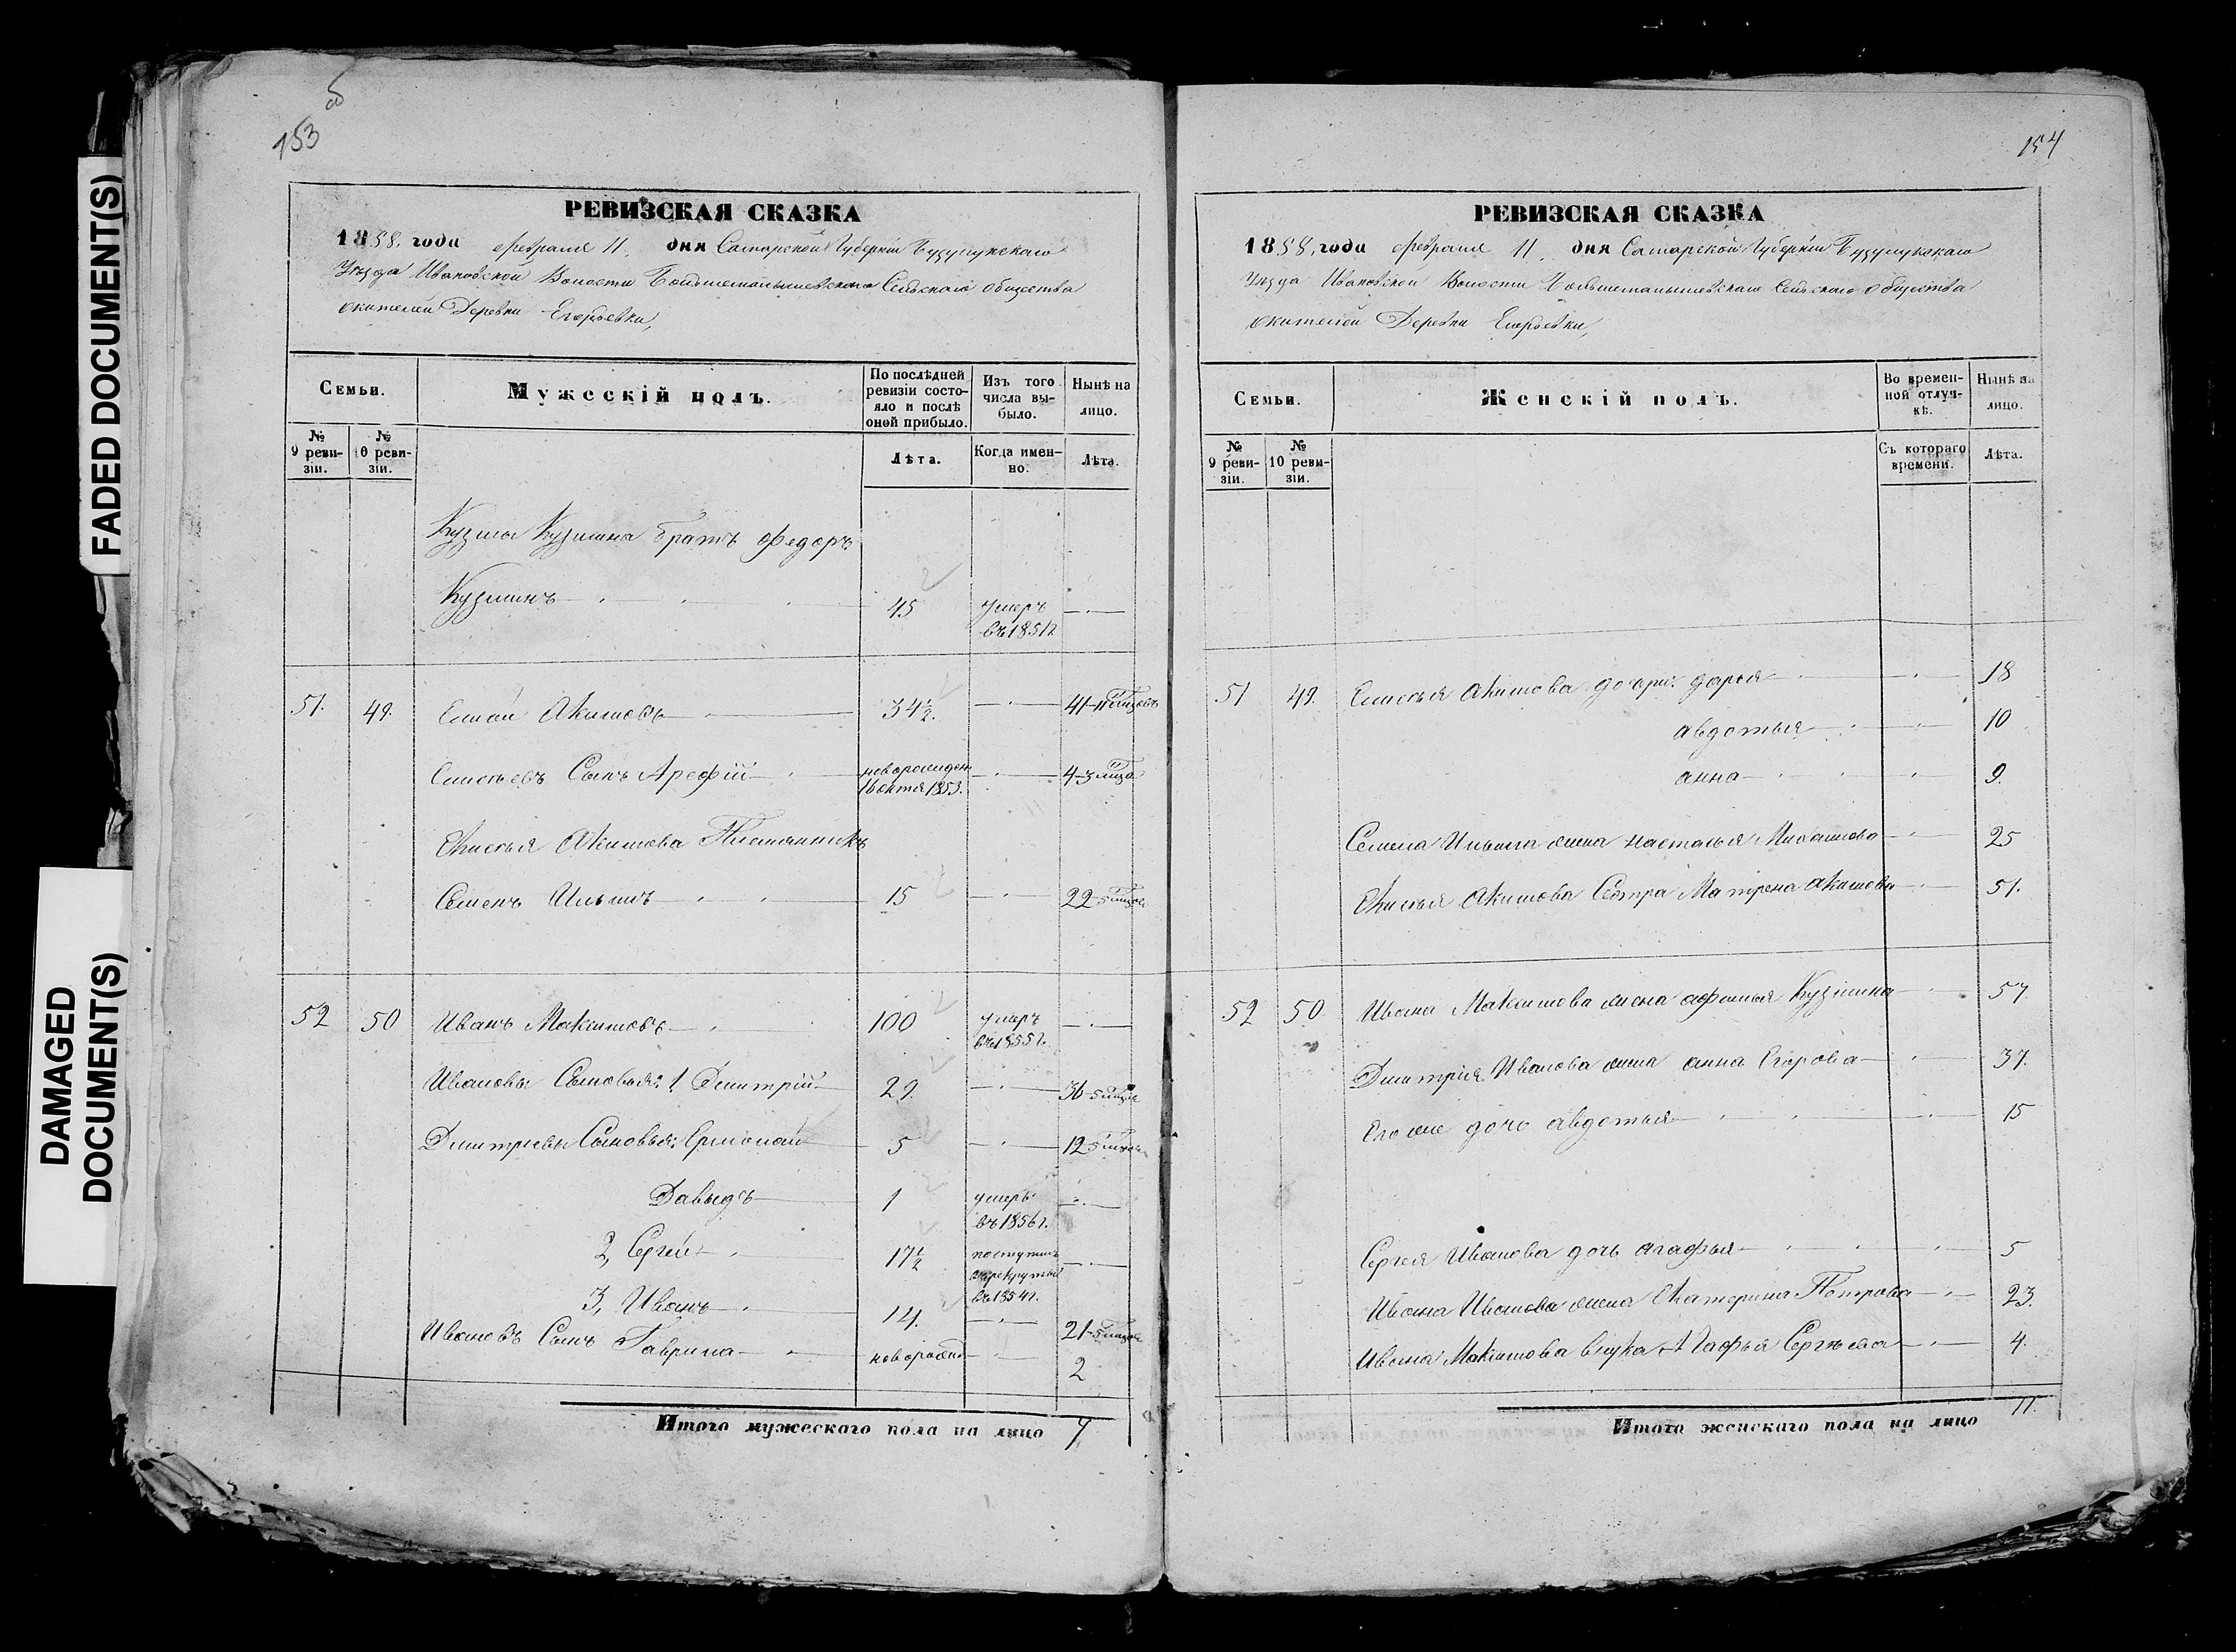 FADED DOCUMENT(S)
DAMAGED
DOCUMENT(S)
153
об
РЕВИЗСКАЯ СКАЗКА
1858. года февраля 11. дня Самарской Губернiи Бузулукскаго
Уѣзда Ивановской Волости Сельскаго общества
жителей Деревни Егорьевки,
Семьи.
Мужескiй полъ.
По послѣдней
ревизiи состо-
яло и послѣ
оной прибыло.
Изъ того
числа вы-
было.
Нынѣ на
лицо.
№
9 реви-
зiи.
№
10 реви-
зiи.
Лѣта.
Когда имен-
но.
Лѣта.
Кузмы Кузмина братъ Федоръ
Кузминъ 45 умеръ
въ 1851 г.
51. 49. Акимовъ 34½. 41
сынъ Арефiй новорожден 4
16 октя 1853.
Акимова Племянникъ
Семенъ Ильинъ 15 22
52 50 Иванъ Максимовъ 100 умеръ
въ 1855 г.
Ивановы Сыновья: 1 Дмитрiй 29. 36
Дмитрiевы Сыновья: Ермолай 5 12
Давыдъ 1 умеръ
въ 1856 г.
2, Сергѣй 17½ поступилъ
въ рекруты
въ 1854 г.
3, Иванъ 14. 21
Ивановъ Сынъ Гаврила новорожд 2
Итого мужескаго пола на лицо 7
154
РЕВИЗСКАЯ СКАЗКА
1858. года февраля 11. дня Самарской Губернiи Бузулукскаго
Уѣзда Ивановской Волости Сельскаго общества
жителей Деревни Егорьевки,
Семьи.
Женскiй полъ.
Во времен-
ной отлуч-
кѣ.
Нынѣ на
лицо.
№
9 реви-
зiи.
№
10 реви-
зiи.
Съ котораго
времени.
Лѣта.
51 49. Акимова дочри: дарья 18
авдотья 10
анна 9.
Семена Ильина жена настасья 25
Акимова Сестра Матрена Акимова 51.
52 50 Ивана Максимова жена афимья Кузмина 57
Дмитрiя Иванова жена анна Егорова 37.
Его же дочь авдотья 15
Сергея Иванова дочь агафья 5
Ивана Иванова жена Екатерина Петрова 23.
Ивана Максимова внука Агафья Сергѣева 4.
Итого женскаго пола на лицо 11.